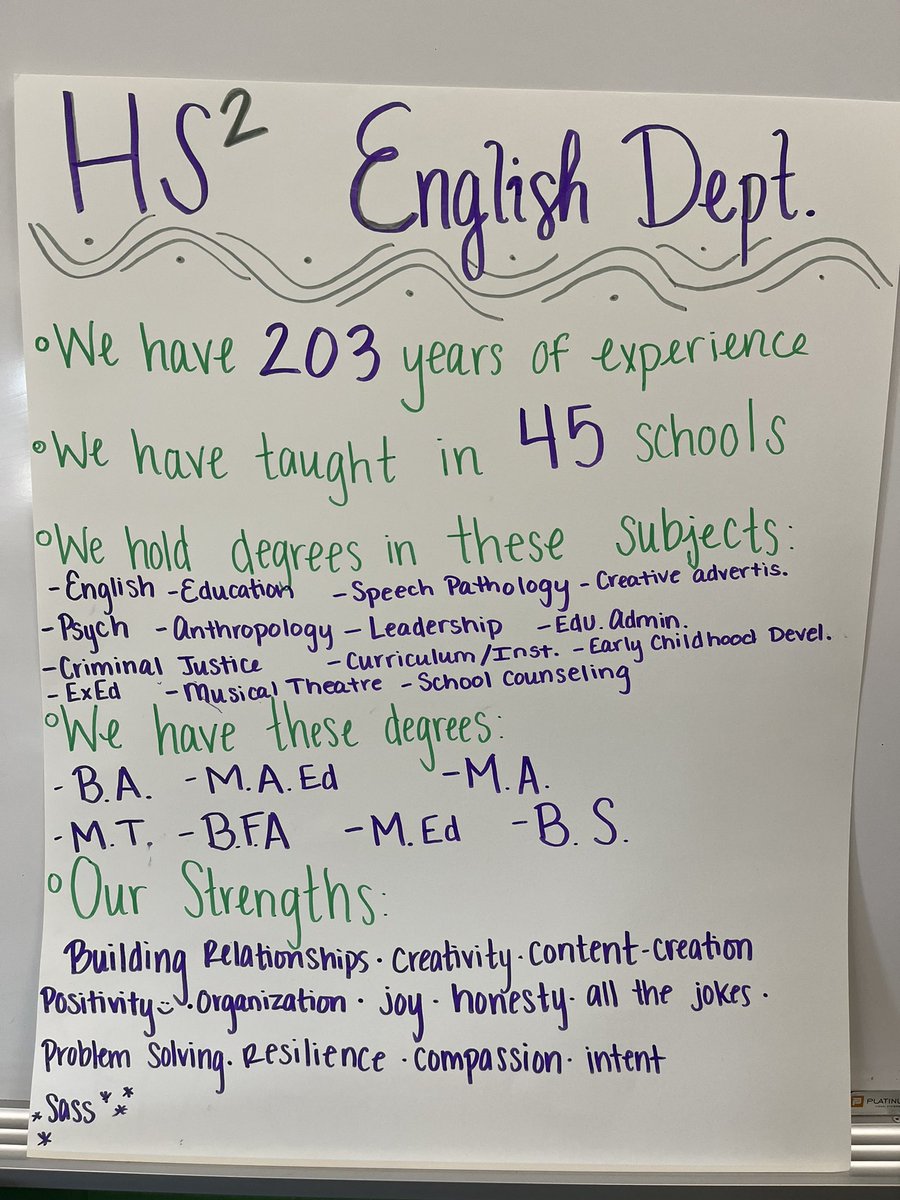 HS² English Dept.
We have 203 years of experience
We have taught in 45 schools
We hold degrees in these subjects:
- English - Education - Speech Pathology - Creative advertis.
- Psych - Anthropology - Leadership - Edu. Admin.
- Criminal Justice - Curriculum/Inst. - Early Childhood Devel.
- ExEd - Musical Theatre - School Counseling
We have these degrees:
- B.A. - M.A. Ed - M.A.
- M.T. - B.F.A - M.Ed - B.S.
Our Strengths:
Building Relationships · Creativity · Content-creation
Positivity · Organization · joy · honesty · all the jokes ·
Problem Solving · Resilience · compassion · intent
* Sass * * *
*